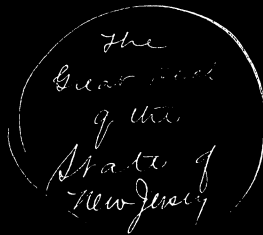 The
Great Seal
of the
State of
New Jersey